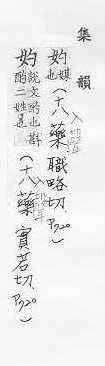 集韻
妁 媒也(十八藥 職略切. P720)
妁 說文酌也斟酌二姓是(十八藥 實若切. P720)